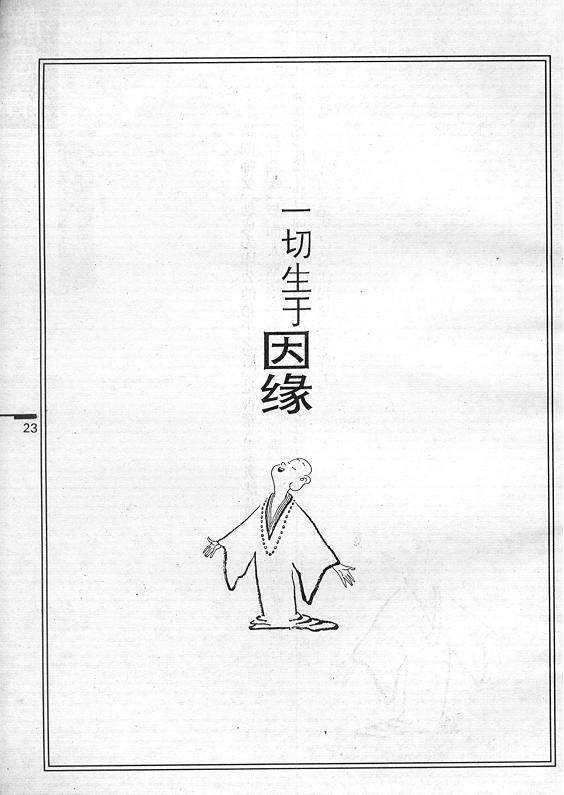 一切生于因缘
23